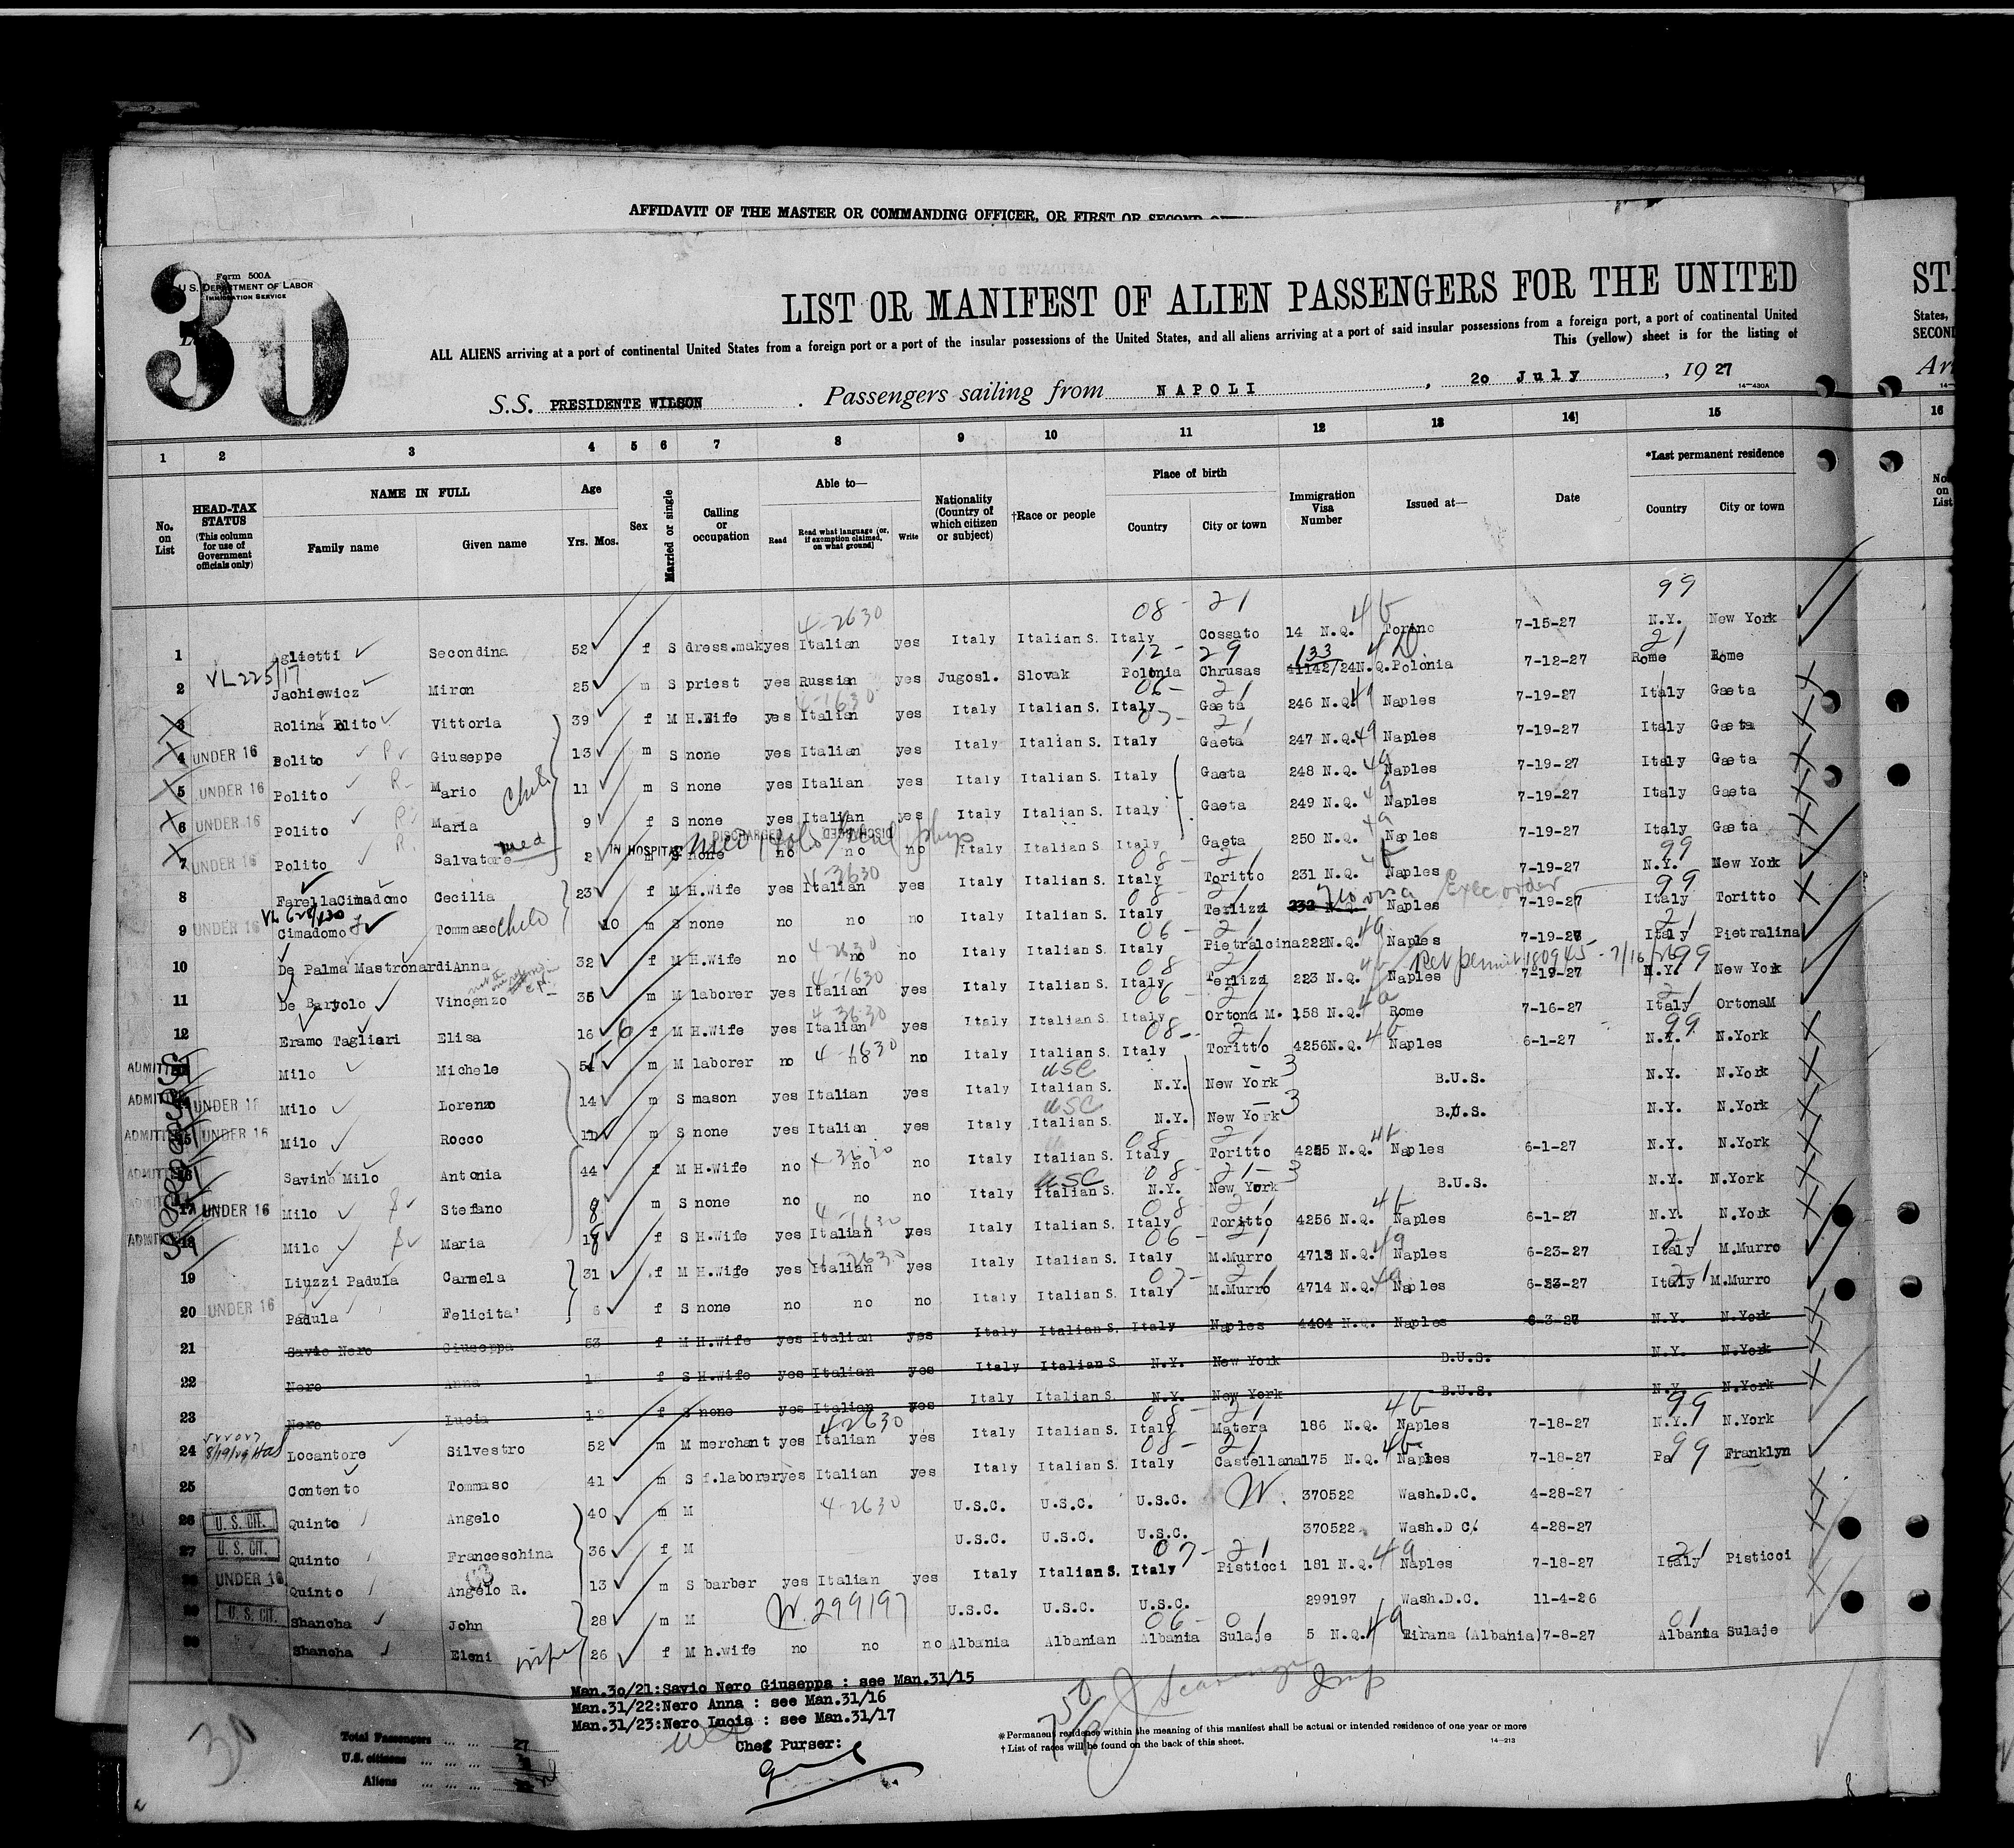 AFFIDAVIT OF THE MASTER OR COMMANDING OFFICER, OR FIRST OR SECOND
30
Form 500A
U. S. DEPARTMENT OF LABOR
IMMIGRATION SERVICE
LIST OR MANIFEST OF ALIEN PASSENGERS FOR THE UNITED
ALL ALIENS arriving at a port of continental United States from a foreign port or a port of the insular possessions of the United States, and all aliens arriving at a port of said insular possessions from a foreign port, a port of continental United
This (yellow) sheet is for the listing of
S.S. PRESIDENTE WILSON . Passengers sailing from NAPOLI , 20 July , 19 27
14—430A
States,
SECOND
1 2 3 4 5 6 7 8 9 10 11 12 13 14 15 16
No. on List
HEAD-TAX STATUS (This column for use of Government officials only)
NAME IN FULL
Family name Given name
Age
Yrs. Mos.
Sex
Married or single
Calling or occupation
Able to—
Read
Read what language (or, if exemption claimed, on what ground)
Write
Nationality (Country of which citizen or subject)
†Race or people
Place of birth
Country City or town
Immigration Visa Number
Issued at—
Date
*Last permanent residence
Country City or town
No. on List
08 - 21 99
4-2630 4b
1 Aglietti Secondina 52 f S dress.mak yes Italian yes Italy Italian S. Italy Cossato 14 N.Q. Torino 7-15-27 N.Y. New York
VL 225/17 12- 29 133 21
2 Jachiewicz Miron 25 m S priest yes Russian yes Jugosl. Slovak Polonia Chrusas 41142/24 N.Q. Polonia 7-12-27 Rome Rome
4-1630 06- 21 49
3 Rolina Polito Vittoria 39 f M H.Wife yes Italian yes Italy Italian S. Italy Gaeta 246 N.Q. Naples 7-19-27 Italy Gaeta
4 UNDER 16 Polito Giuseppe 13 m S none yes Italian yes Italy Italian S. Italy Gaeta 247 N.Q. 49 Naples 7-19-27 Italy Gaeta
5 UNDER 16 Polito Mario 11 m S none yes Italian yes Italy Italian S. Italy Gaeta 248 N.Q. Naples 7-19-27 Italy Gaeta
6 UNDER 16 Polito Maria 9 f S none yes Italian yes Italy Italian S. Italy Gaeta 249 N.Q. Naples 7-19-27 Italy Gaeta
DISCHARGED DISCHARGED
7 UNDER 16 Polito Salvatore med 2 IN HOSPITAL m S none no no no Italy Italian S. Italy Gaeta 250 N.Q. Naples 7-19-27 Italy Gaeta
4-2630 08 - 21 4b 99
8 Farella Cimadomo Cecilia 23 f M H.Wife yes Italian yes Italy Italian S. Italy Toritto 231 N.Q. Naples 7-19-27 N.Y. New York
08- 21 No visa Exec order 99
9 UNDER 16 Cimadomo Tommaso 10 m S none no no no Italy Italian S. Italy Terlizzi 232 N.Q. Naples 7-19-27 Italy Toritto
4-2630 06- 21
10 De Palma Mastronardi Anna 32 f M H.Wife no no no Italy Italian S. Italy Pietralcina 222 N.Q. Naples 7-19-27 Italy Pietralina
4-1630 08 21 Ret permit 180945 - 7/16/26 99
11 De Bartolo Vincenzo 35 m M laborer yes Italian yes Italy Italian S. Italy Terlizzi 223 N.Q. Naples 7-19-27 N.Y. New York
4-3630 06 21
12 Eramo Tagliari Elisa 16 6 f M H.Wife yes Italian yes Italy Italian S. Italy Ortona M. 158 N.Q. Rome 7-16-27 Italy Ortona M
4-1830 08- 21 4b 99
ADMITTED Milo Michele 51 m M laborer no no no Italy Italian S. Italy Toritto 4256 N.Q. Naples 6-1-27 N.Y. N.York
USC 3
ADMITTED UNDER 16 Milo Lorenzo 14 m S mason yes Italian yes Italy Italian S. N.Y. New York B.U.S. N.Y. N.York
USC 3
ADMITTED 15 UNDER 16 Milo Rocco 11 m S none yes Italian yes Italy Italian S. N.Y. New York B.U.S. N.Y. N.York
4-3630 08- 21 4b
ADMITTED 16 Savino Milo Antonia 44 f M H.Wife no no no Italy Italian S. Italy Toritto 4255 N.Q. Naples 6-1-27 N.Y. N.York
USC 08- 21- 3
17 UNDER 16 Milo Stefano 8 m S none no no no Italy Italian S. N.Y. New York B.U.S. N.Y. N.York
4-1630 4b
ADMITTED 18 Milo Maria 18 f S H.Wife yes Italian yes Italy Italian S. Italy Toritto 4256 N.Q. Naples 6-1-27 N.Y. N.York
4-2630 06- 21 49
19 Liuzzi Padula Carmela 31 f M H.Wife yes Italian yes Italy Italian S. Italy M.Murro 4713 N.Q. Naples 6-23-27 Italy M.Murro
07- 21 49
20 UNDER 16 Padula Felicita 6 f S none no no no Italy Italian S. Italy M.Murro 4714 N.Q. Naples 6-23-27 Italy M.Murro
21 Savio Nero Giuseppa 53 f M H.Wife yes Italian yes Italy Italian S. Italy Naples 4404 N.Q. Naples 6-3-27 N.Y. N.York
22 Nero Anna f S H.Wife yes Italian yes Italy Italian S. N.Y. New York B.U.S. N.Y. N.York
23 Nero Lucia f S none yes Italian yes Italy Italian S. N.Y. New York B.U.S. N.Y. N.York
4-2630 08- 21 4b 99
24 Locantore Silvestro 52 m M merchant yes Italian yes Italy Italian S. Italy Matera 186 N.Q. Naples 7-18-27 N.Y. N.York
08- 21 4b 99
25 Contento Tommaso 41 m S f.laborer yes Italian yes Italy Italian S. Italy Castellana 175 N.Q. Naples 7-18-27 Pa Franklyn
26 U. S. CIT. Quinto Angelo 40 m M 4-2630 U.S.C. U.S.C. U.S.C. W. 370522 Wash.D.C. 4-28-27
27 U. S. CIT. Quinto Franceschina 36 f M U.S.C. U.S.C. U.S.C. 370522 Wash.D C. 4-28-27
07- 21 49 21
UNDER 16 Quinto Angelo R. 13 m S barber yes Italian yes Italy Italian S. Italy Pisticci 181 N.Q. Naples 7-18-27 Italy Pisticci
U. S. CIT. Shancha John 28 m M W. 299197 U.S.C. U.S.C. U.S.C. 299197 Wash.D.C. 11-4-26
06- 01 49 01
30 Shancha Eleni wife 26 f M h.wife no no no Albania Albanian Albania Sulaje 5 N.Q. Tirana (Albania) 7-8-27 Albania Sulaje
Man.30/21:Savio Nero Giuseppa : see Man.31/15
Man.31/22:Nero Anna : see Man.31/16
Man.31/23:Nero Lucia : see Man.31/17
Chef Purser:
30
Total Passengers ... ... 27
U.S. citizens ... ... ...
Aliens ... ... ...
*Permanent residence within the meaning of this manifest shall be actual or intended residence of one year or more
†List of races will be found on the back of this sheet.
14—213